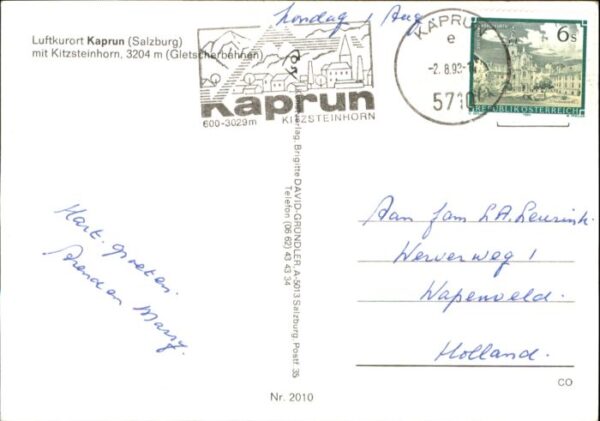 Zondag 1 Aug
Luftkurort Kaprun (Salzburg)
mit Kitzsteinhorn, 3204 m (Gletscherbahnen)
Kaprun
600-3029m KITZSTEINHORN
KAPRUN
e
-2.8.93-1
5710
6s
REPUBLIK ÖSTERREICH
Verlag, Brigitte DAVID-GRÜNDLER, A-5013 Salzburg, Postf. 35
Telefon (06 62) 43 43 34
Hart. groeten.
Arend en Marry.
Aan fam L.A. Leusink
Werverweg 1
Wapenveld.
Holland.
Nr. 2010
CO